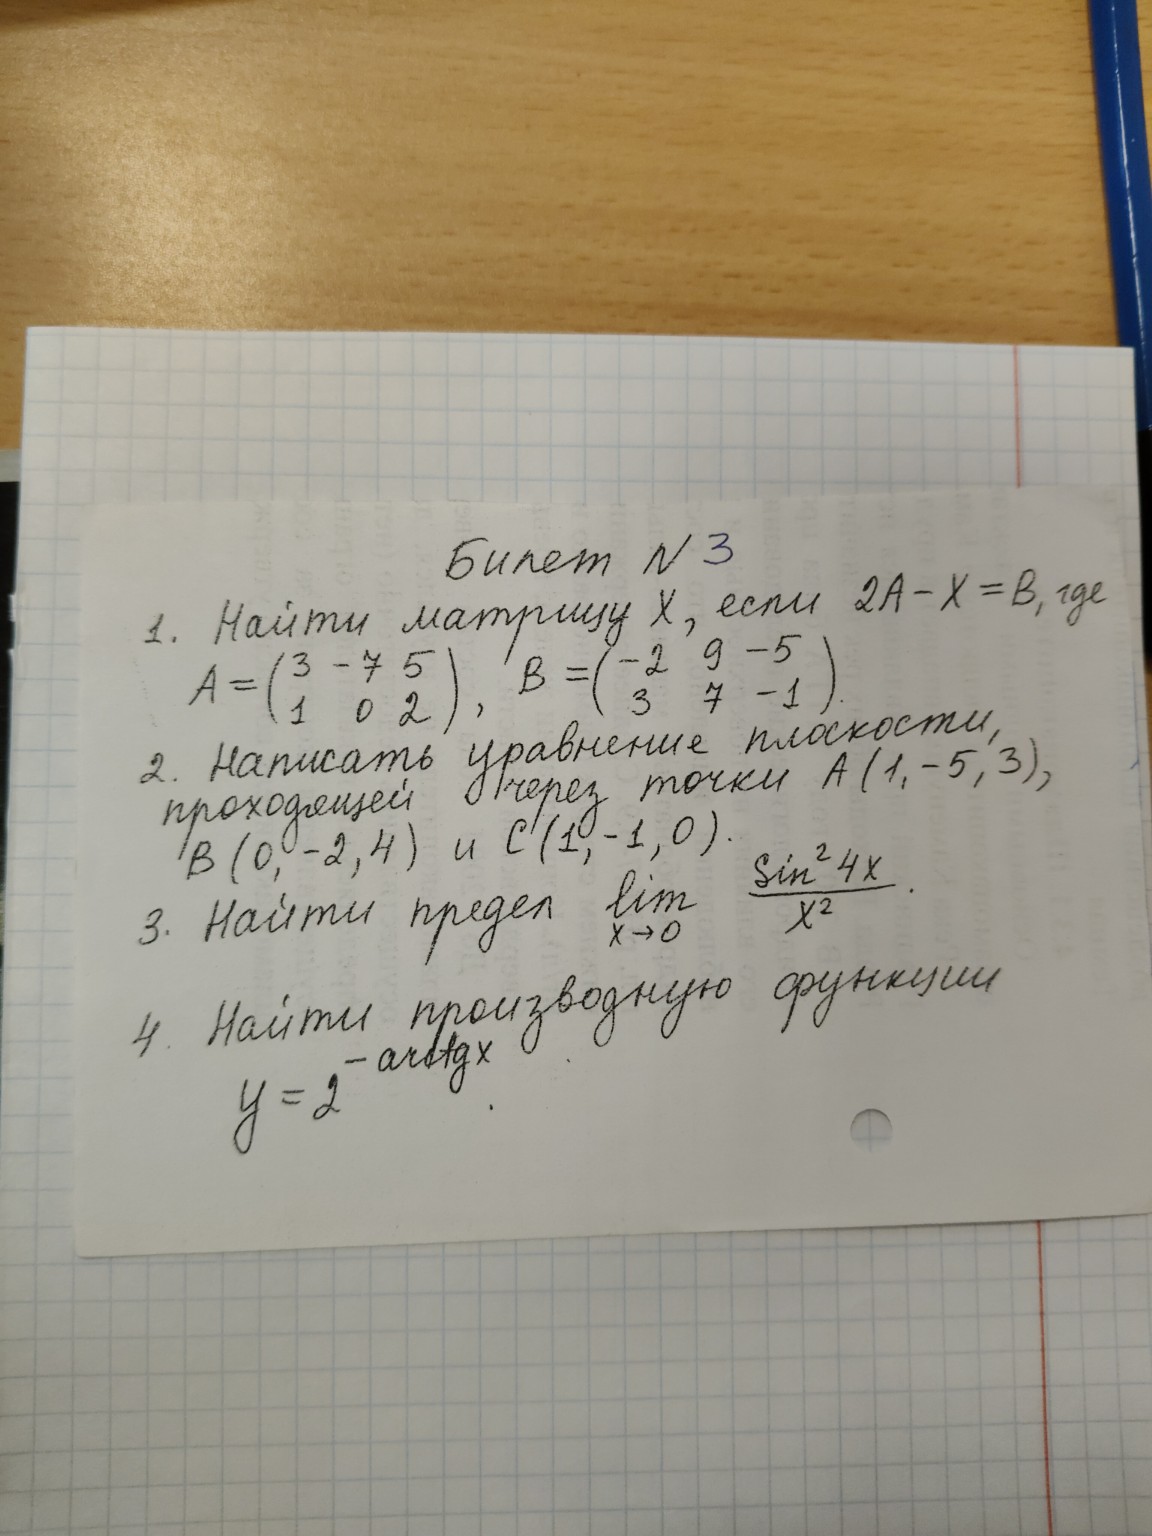 Билет N 3
1. Найти матрицу X, если 2A - X = B, где
A = (3 -7 5), B = (-2 9 -5)
(1 0 2) (3 7 -1).
2. Написать уравнение плоскости,
проходящей через точки A(1, -5, 3),
B(0, -2, 4) и C(1, -1, 0).
3. Найти предел lim x→0 Sin² 4x / x².
4. Найти производную функции
y = 2^(-arctg x).